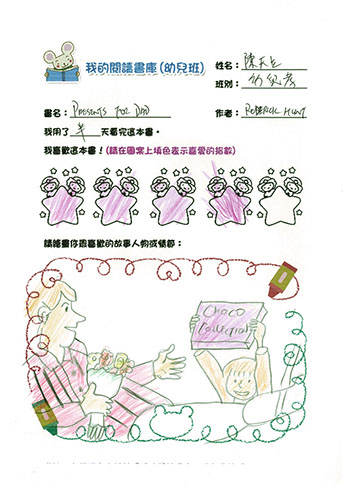 我的閱讀書庫(幼兒班)
姓名：陳天
班別：幼兒
書名：PRESENTS FOR DAD
作者：RODERICK HUNT
我用了 半 天看完這本書。
我喜歡這本書！(請在圖案上填色表示喜愛的指數)
請繪畫你最喜歡的故事人物或情節：
CHOCO
Collection